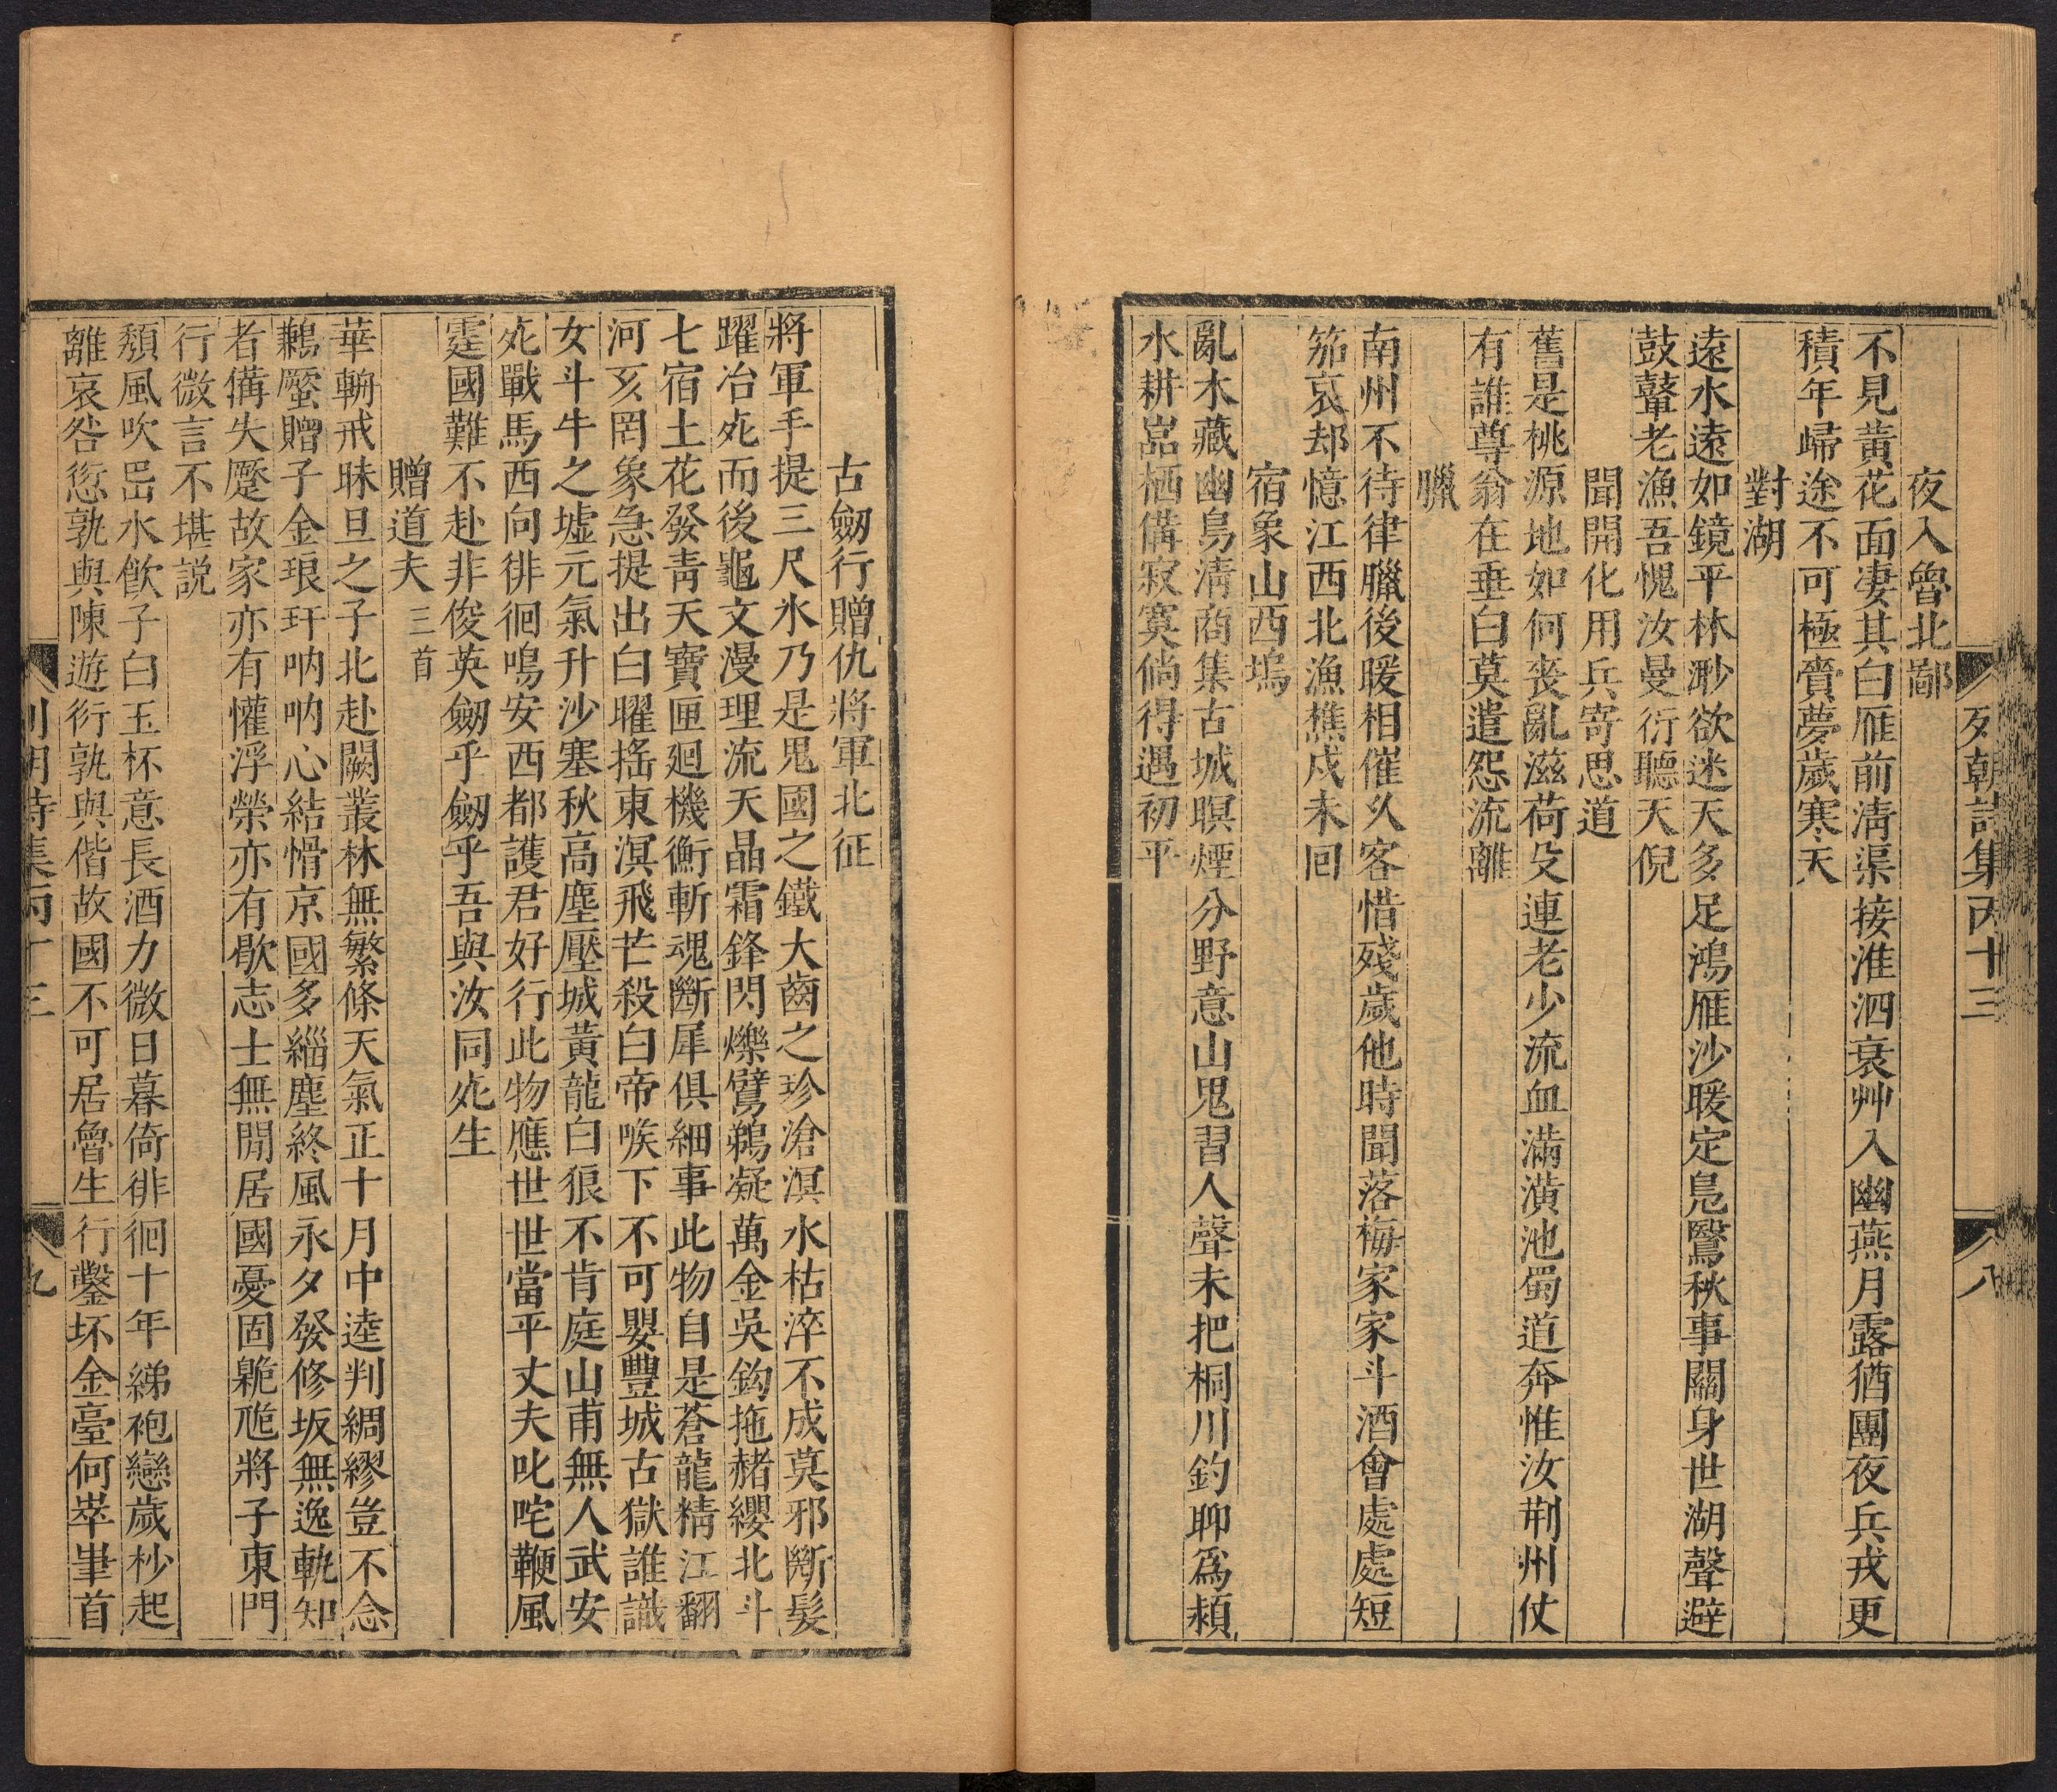 列朝詩集丙十三
八
夜入魯北鄙
不見黃花面凄其白雁前淸渠接淮泗衰艸入幽燕月露猶團夜兵戎更
積年歸途不可極賫夢歲寒天
對湖
遠水遠如鏡平林渺欲迷天多足鴻雁沙暖定鳧鷖秋事關身世湖聲避
鼓鼙老漁吾愧汝曼衍聽天倪
聞開化用兵寄思道
舊是桃源地如何喪亂滋荷殳連老少流血滿潢池蜀道奔惟汝荆州仗
有誰尊翁在垂白莫遣怨流離
臘
南州不待律臘後暖相催久客惜殘歲他時聞落梅家家斗酒會處處短
笳哀却憶江西北漁樵戍未囘
宿象山西塢
亂木藏幽鳥淸商集古城暝煙分野意山鬼習人聲未把桐川釣聊爲潁
水耕嵓栖備寂寞倘得遇初平
古劒行贈仇將軍北征
將軍手提三尺氷乃是鬼國之鐵大齒之珍滄溟水枯淬不成莫邪斷髮
躍冶死而後龜文漫理流天晶霜鋒閃爍鷿鵜凝萬金吳鈎拖赭纓北斗
七宿土花發靑天寶匣廻機衡斬魂斷犀俱細事此物自是蒼龍精江翻
河亥罔象急提出白曜搖東溟飛芒殺白帝喉下不可嬰豐城古獄誰識
女斗牛之墟元氣升沙塞秋高塵壓城黃龍白狼不肯庭山甫無人武安
死戰馬西向徘徊鳴安西都護君好行此物應世世當平丈夫叱咤鞭風
霆國難不赴非俊英劒乎劒乎吾與汝同死生
贈道夫三首
華輈戒昧旦之子北赴闕叢林無繁條天氣正十月中逵判綢繆豈不念
鶼蟨贈子金琅玕吶吶心結愲京國多緇塵終風永夕發修坂無逸軌知
者備失蹷故家亦有懽浮榮亦有歇志士無閒居國憂固臲卼將子東門
行微言不堪説
頹風吹嵒水飮子白玉杯意長酒力微日暮倚徘徊十年綈袍戀歲杪起
離哀咎愆孰與陳遊衍孰與偕故國不可居魯生行鑿坏金臺何崒嵂首
列朝詩集丙十三
九